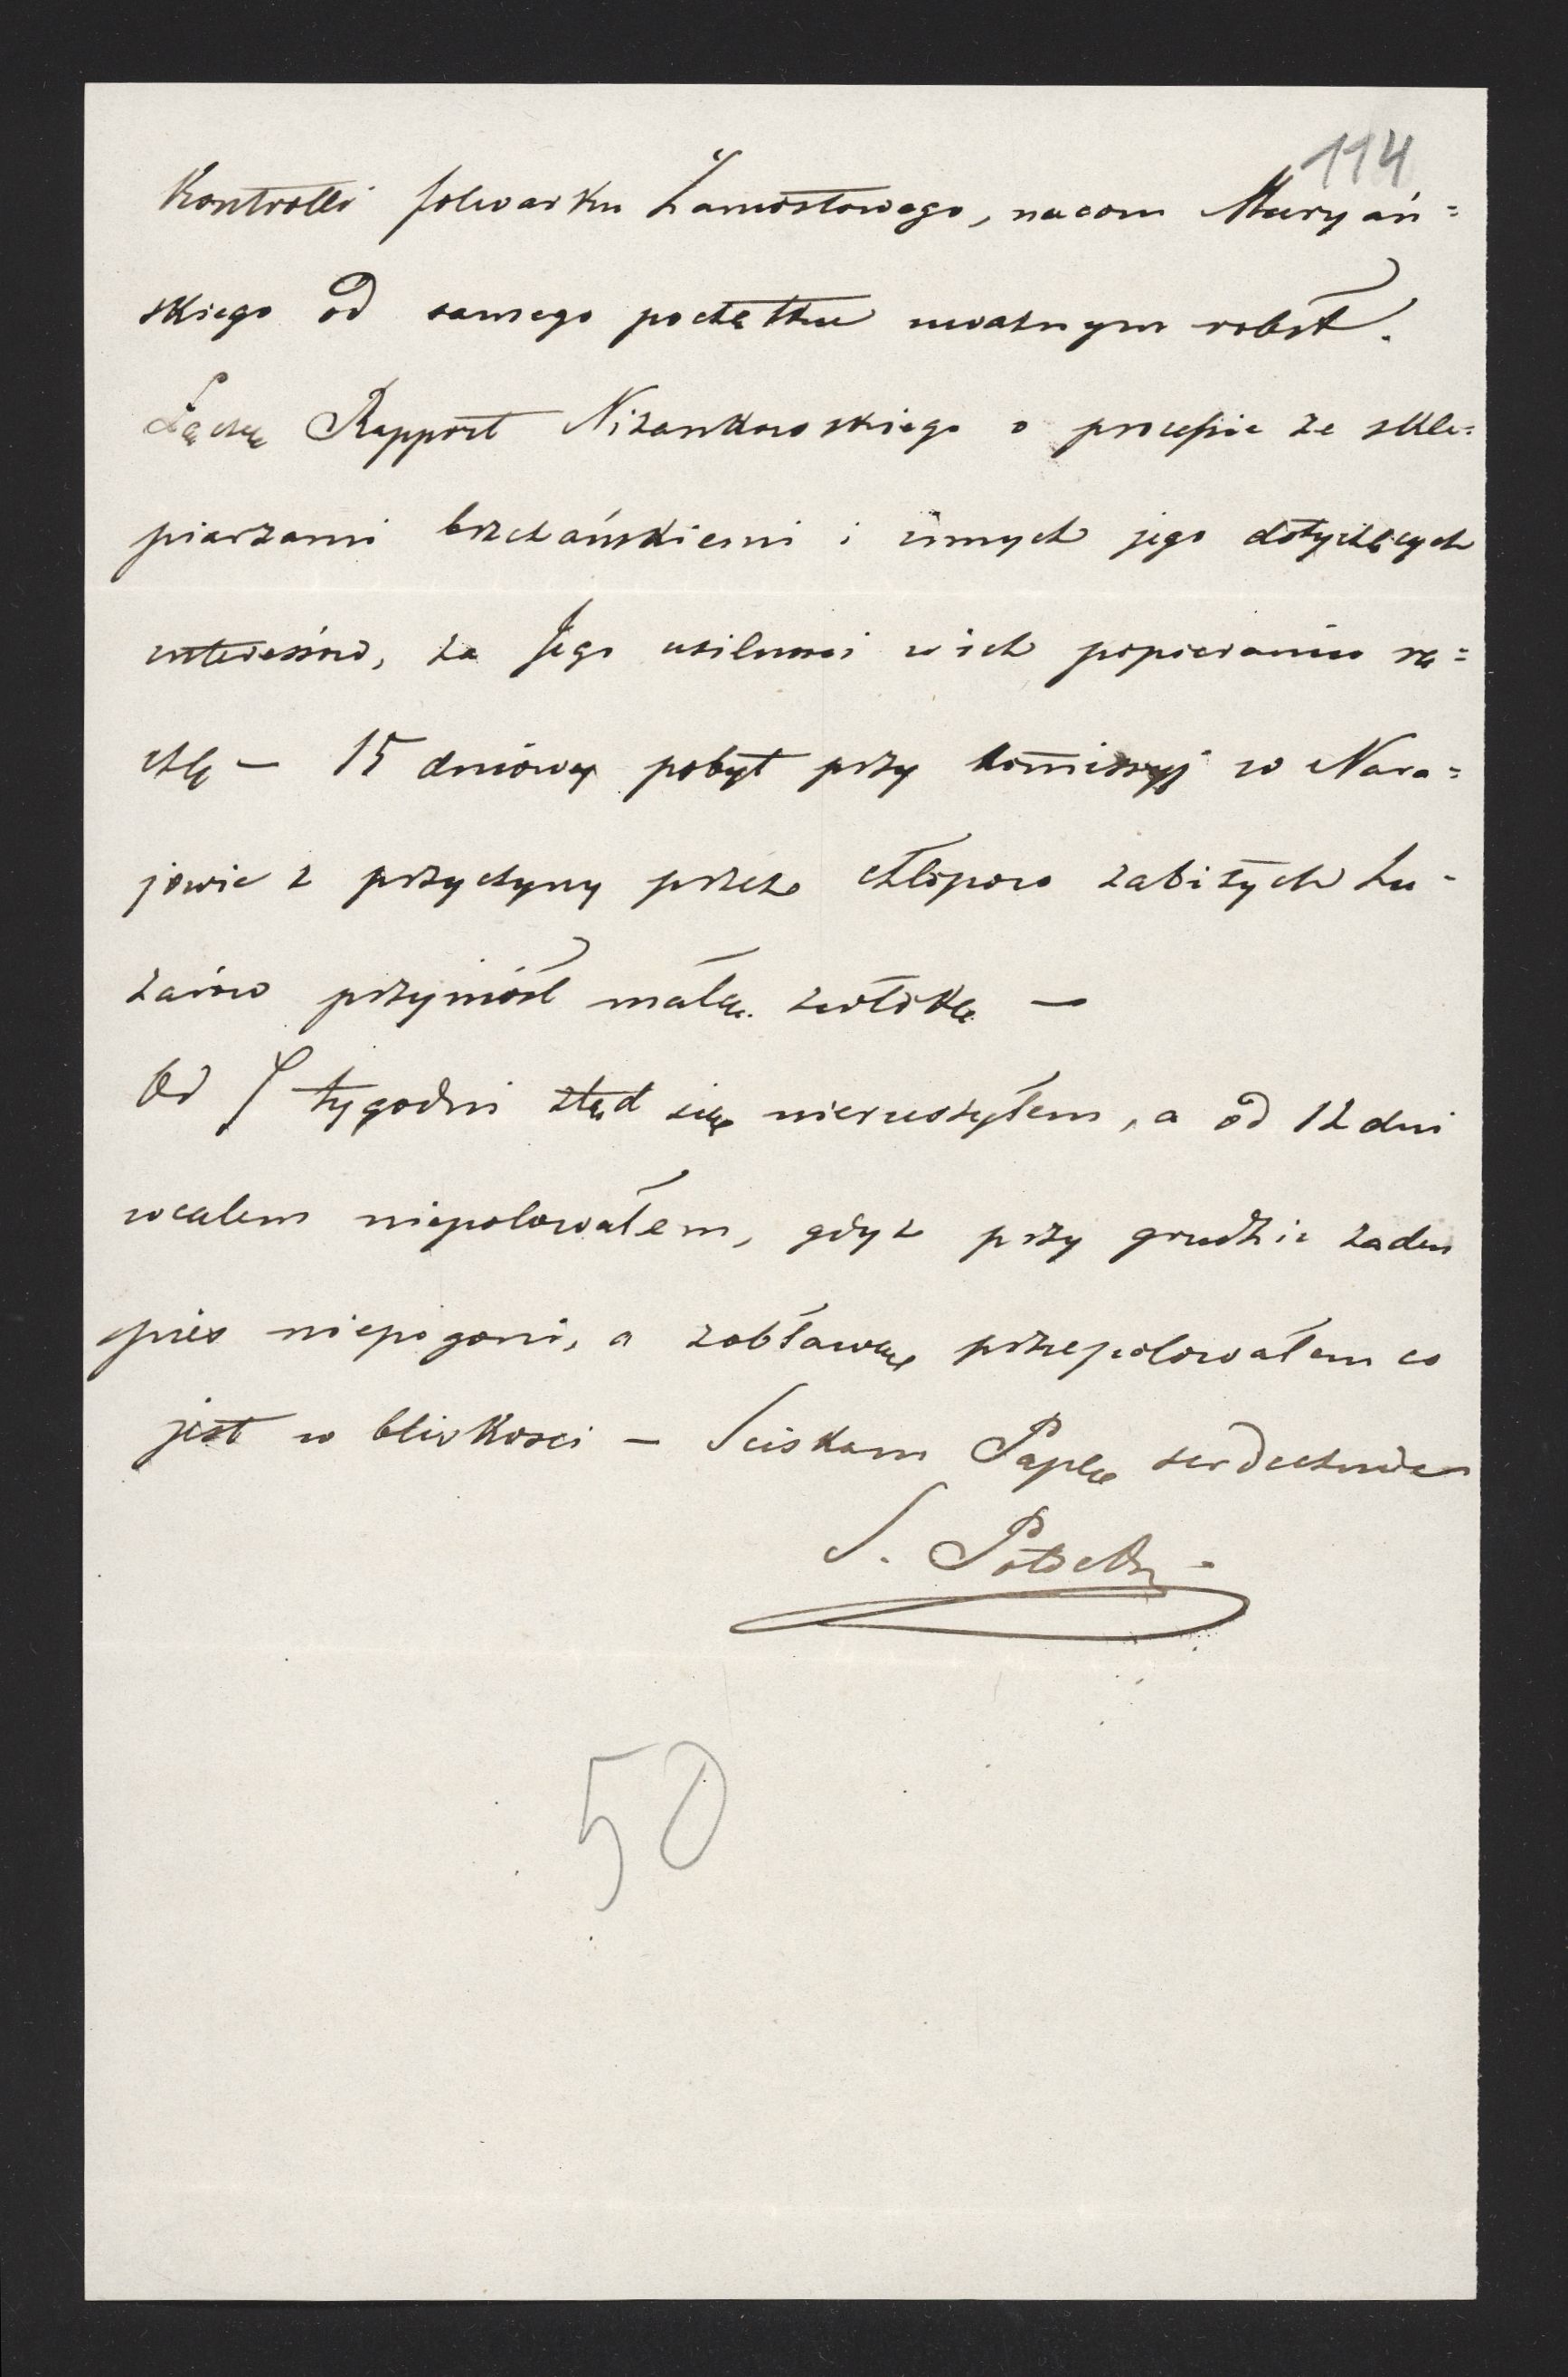 114
Kontrolli folwarku Zamostowego, nacom Maryań=
skiego od samego początku uważnym robił.
Łączę Rapport Niżankowskiego o processie ze skle=
piarzami brzeżańskiemi i innych jego dotyczących
interessów, za Jego usilność w ich popieraniu rę=
czę — 15 dniowy pobyt przy komissyj w Nara=
jowie z przyczyny przez chłopów zabitych Hu-
zarów przyniósł małą zwłókę —
Od 5 tygodni ztąd się nieruszyłem, a od 12 dni
wcalem niepolowałem, gdyż przy grudzie żaden
pies niepogoni, a zobławą przepolowałem co
jest w bliskości — Sciskam Papę serdecznie
S. Potocki
50